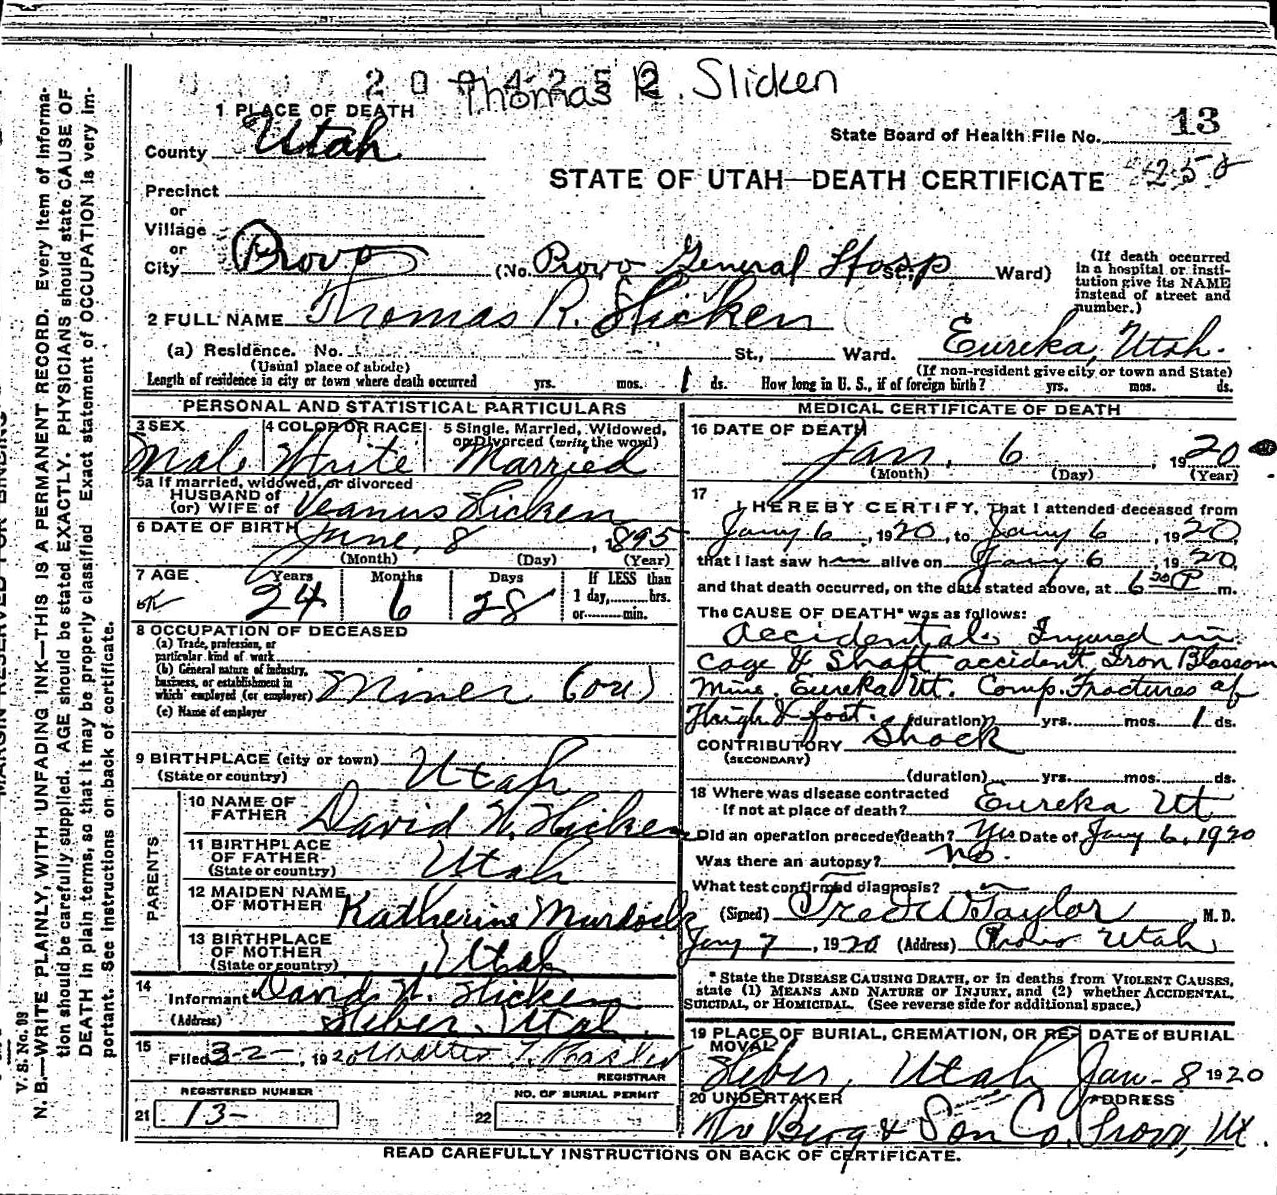 2004252
Thomas R. Slicken
1 PLACE OF DEATH
County Utah
State Board of Health File No. 13
258
STATE OF UTAH—DEATH CERTIFICATE
Precinct
or
Village
or
City Provo (No. Provo General Hosp St., Ward)
(If death occurred in a hospital or institution give its NAME instead of street and number.)
2 FULL NAME Thomas R. Slicken
(a) Residence. No. St., Ward. Eureka, Utah.
(Usual place of abode) (If non-resident give city or town and State)
Length of residence in city or town where death occurred yrs. mos. 1 ds. How long in U. S., if of foreign birth? yrs. mos. ds.
PERSONAL AND STATISTICAL PARTICULARS
3 SEX 4 COLOR OR RACE 5 Single, Married, Widowed, or Divorced (write the word)
Male White Married
5a If married, widowed, or divorced
HUSBAND of
(or) WIFE of Veanus Slicken
6 DATE OF BIRTH June, 8, 1895
(Month) (Day) (Year)
7 AGE Years Months Days If LESS than
ok 24 6 28 1 day, hrs.
or min.
8 OCCUPATION OF DECEASED
(a) Trade, profession, or particular kind of work
(b) General nature of industry, business, or establishment in which employed (or employer) Miner (ore)
(c) Name of employer
9 BIRTHPLACE (city or town) Utah
(State or country)
PARENTS
10 NAME OF FATHER David N. Slicken
11 BIRTHPLACE OF FATHER Utah
(State or country)
12 MAIDEN NAME OF MOTHER Katherine Murdock
13 BIRTHPLACE OF MOTHER Utah
(State or country)
14 Informant David N. Slicken
(Address) Heber, Utah.
15 Filed 3-2-, 1920 Walter T. Hasler
REGISTRAR
REGISTERED NUMBER
21 13-
NO. OF BURIAL PERMIT
22
MEDICAL CERTIFICATE OF DEATH
16 DATE OF DEATH
Jan, 6, 1920
(Month) (Day) (Year)
17 I HEREBY CERTIFY, That I attended deceased from
Jany 6, 1920, to Jany 6, 1920,
that I last saw him alive on Jany 6 1920,
and that death occurred, on the date stated above, at 6 30 P m.
The CAUSE OF DEATH* was as follows:
Accidental. Injured in
Cage & Shaft accident, Iron Blossom
Mine. Eureka Ut. Comp. Fractures of
Thigh & foot. (duration) yrs. mos. 1 ds.
CONTRIBUTORY Shock
(SECONDARY)
(duration) yrs. mos. ds.
18 Where was disease contracted
if not at place of death? Eureka Ut
Did an operation precede death? Yes Date of Jany 6, 1920
Was there an autopsy? no.
What test confirmed diagnosis?
(Signed) Fred W Taylor, M. D.
Jany 7, 1920 (Address) Provo Utah
*State the DISEASE CAUSING DEATH, or in deaths from VIOLENT CAUSES, state (1) MEANS AND NATURE OF INJURY, and (2) whether ACCIDENTAL, SUICIDAL, or HOMICIDAL. (See reverse side for additional space.)
19 PLACE OF BURIAL, CREMATION, OR REMOVAL DATE of BURIAL
Heber, Utah Jan-8 1920
20 UNDERTAKER ADDRESS
Berg & Son Co. Provo, Ut.
READ CAREFULLY INSTRUCTIONS ON BACK OF CERTIFICATE.
V. S. No. 98
N. B.—WRITE PLAINLY, WITH UNFADING INK—THIS IS A PERMANENT RECORD. Every item of information should be carefully supplied. AGE should be stated EXACTLY. PHYSICIANS should state CAUSE OF DEATH in plain terms, so that it may be properly classified. Exact statement of OCCUPATION is very important. See instructions on back of certificate.